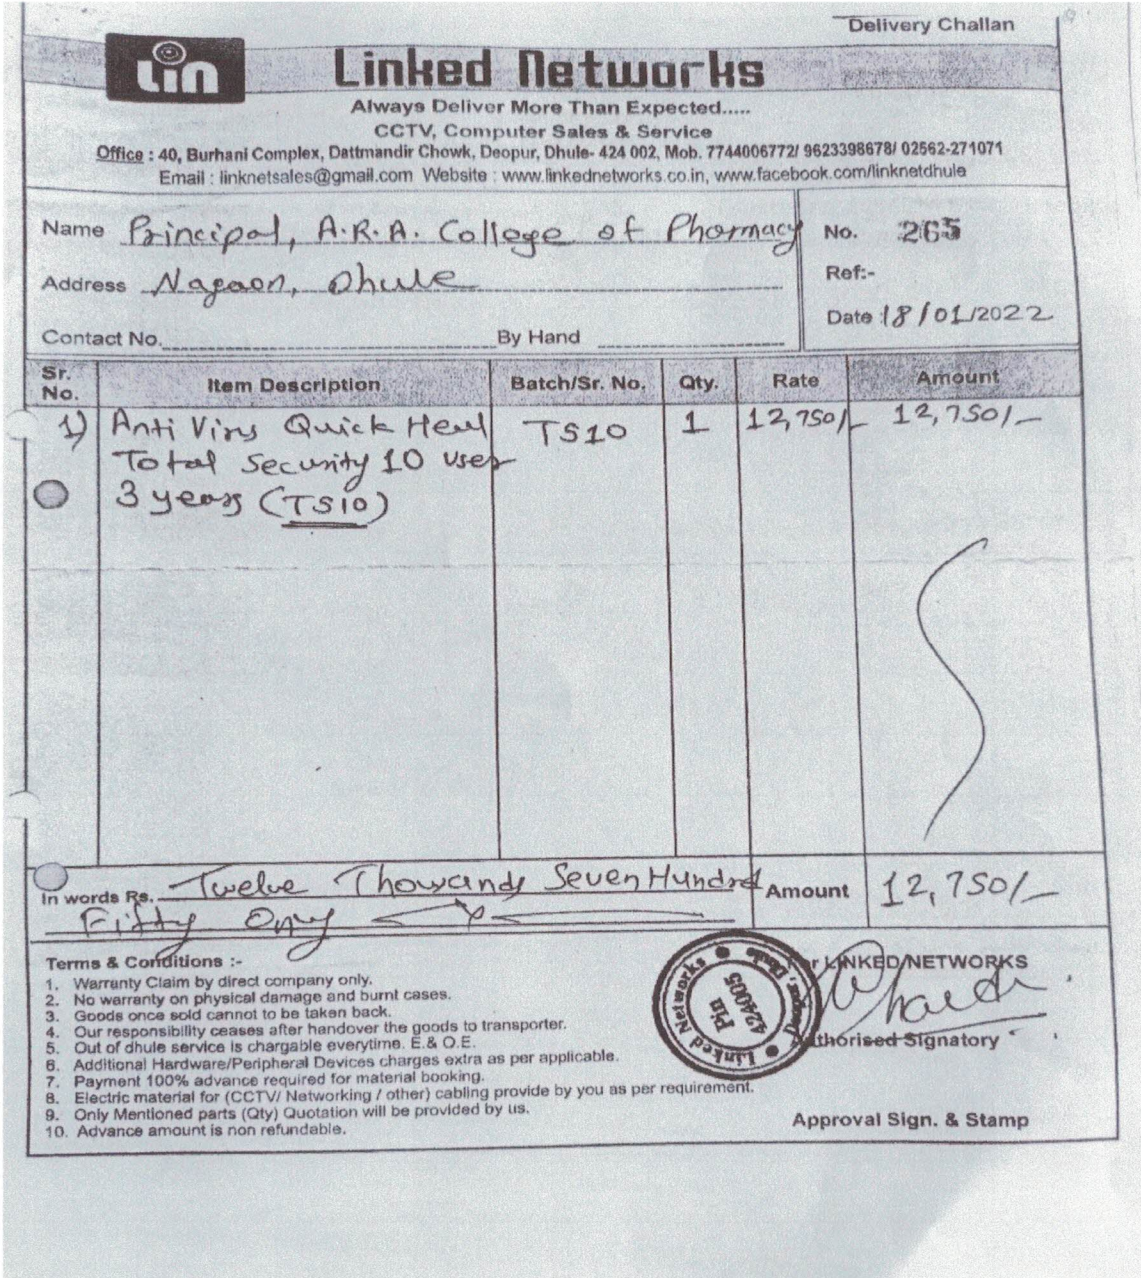 Delivery Challan
Lin
Linked Networks
Always Deliver More Than Expected.....
CCTV, Computer Sales & Service
Office : 40, Burhani Complex, Dattmandir Chowk, Deopur, Dhule- 424 002, Mob. 7744006772/ 9623398678/ 02562-271071
Email : linknetsales@gmail.com Website : www.linkednetworks.co.in, www.facebook.com/linknetdhule
Name Principal, A.R.A. College of Pharmacy No. 265
Address Nagaon, Dhule Ref:-
Contact No. By Hand Date :18/01/2022
Sr. No. Item Description Batch/Sr. No. Qty. Rate Amount
1) Anti Virs Quick Heal TS10 1 12,750/- 12,750/-
Total Security 10 user
3 years (TS10)
In words Rs. Twelve Thousands Seven Hundred Amount 12,750/-
Fifty Ony
Terms & Conditions :-
1. Warranty Claim by direct company only.
2. No warranty on physical damage and burnt cases.
3. Goods once sold cannot to be taken back.
4. Our responsibility ceases after handover the goods to transporter.
5. Out of dhule service is chargable everytime. E.& O.E.
6. Additional Hardware/Peripheral Devices charges extra as per applicable.
7. Payment 100% advance required for material booking.
8. Electric material for (CCTV/ Networking / other) cabling provide by you as per requirement.
9. Only Mentioned parts (Qty) Quotation will be provided by us.
10. Advance amount is non refundable.
Linked Networks Deopur, Dhule Linked Networks
Pin
424005
For LINKED NETWORKS
Authorised Signatory
Approval Sign. & Stamp